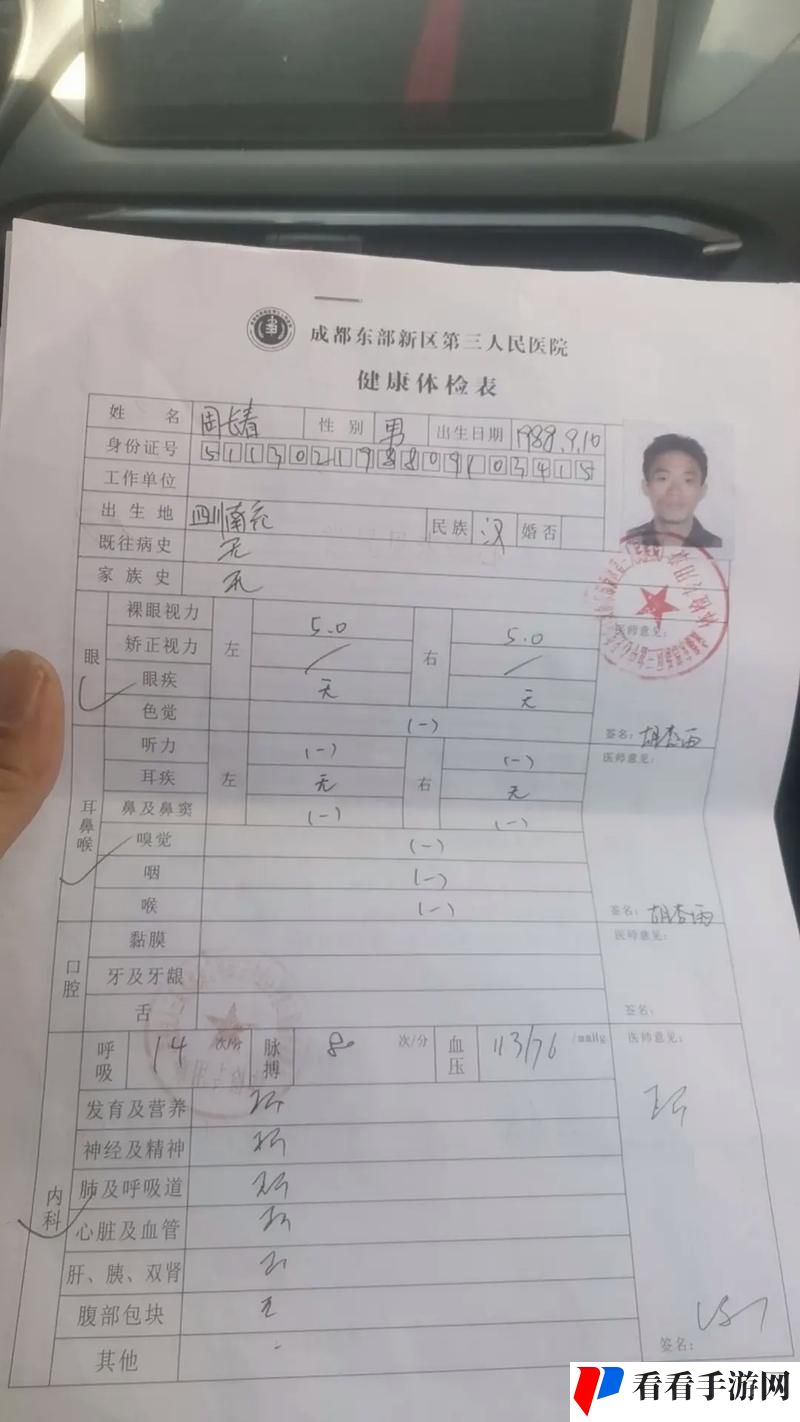 成都东部新区第三人民医院
健康体检表
姓名 周长春 性别 男 出生日期 1988.9.10
身份证号 511302198809103415
工作单位
出生地 四川南充 民族 汉 婚否
既往病史 无
家族史 无
眼 裸眼视力 左 5.0 右 5.0 医师意见:
矫正视力 / /
眼疾 无 无
色觉 (-) 签名: 胡杏雨
耳鼻喉 听力 左 (-) 右 (-) 医师意见:
耳疾 无 无
鼻及鼻窦 (-) (-)
嗅觉 (-)
咽 (-)
喉 (-) 签名: 胡杏雨
口腔 黏膜 医师意见:
牙及牙龈
舌 签名:
内科 呼吸 14 次/分 脉搏 80 次/分 血压 113/76 /mmHg 医师意见:
发育及营养
神经及精神
肺及呼吸道
心脏及血管
肝、胰、双肾
腹部包块 无
其他 - 签名:
看看手游网